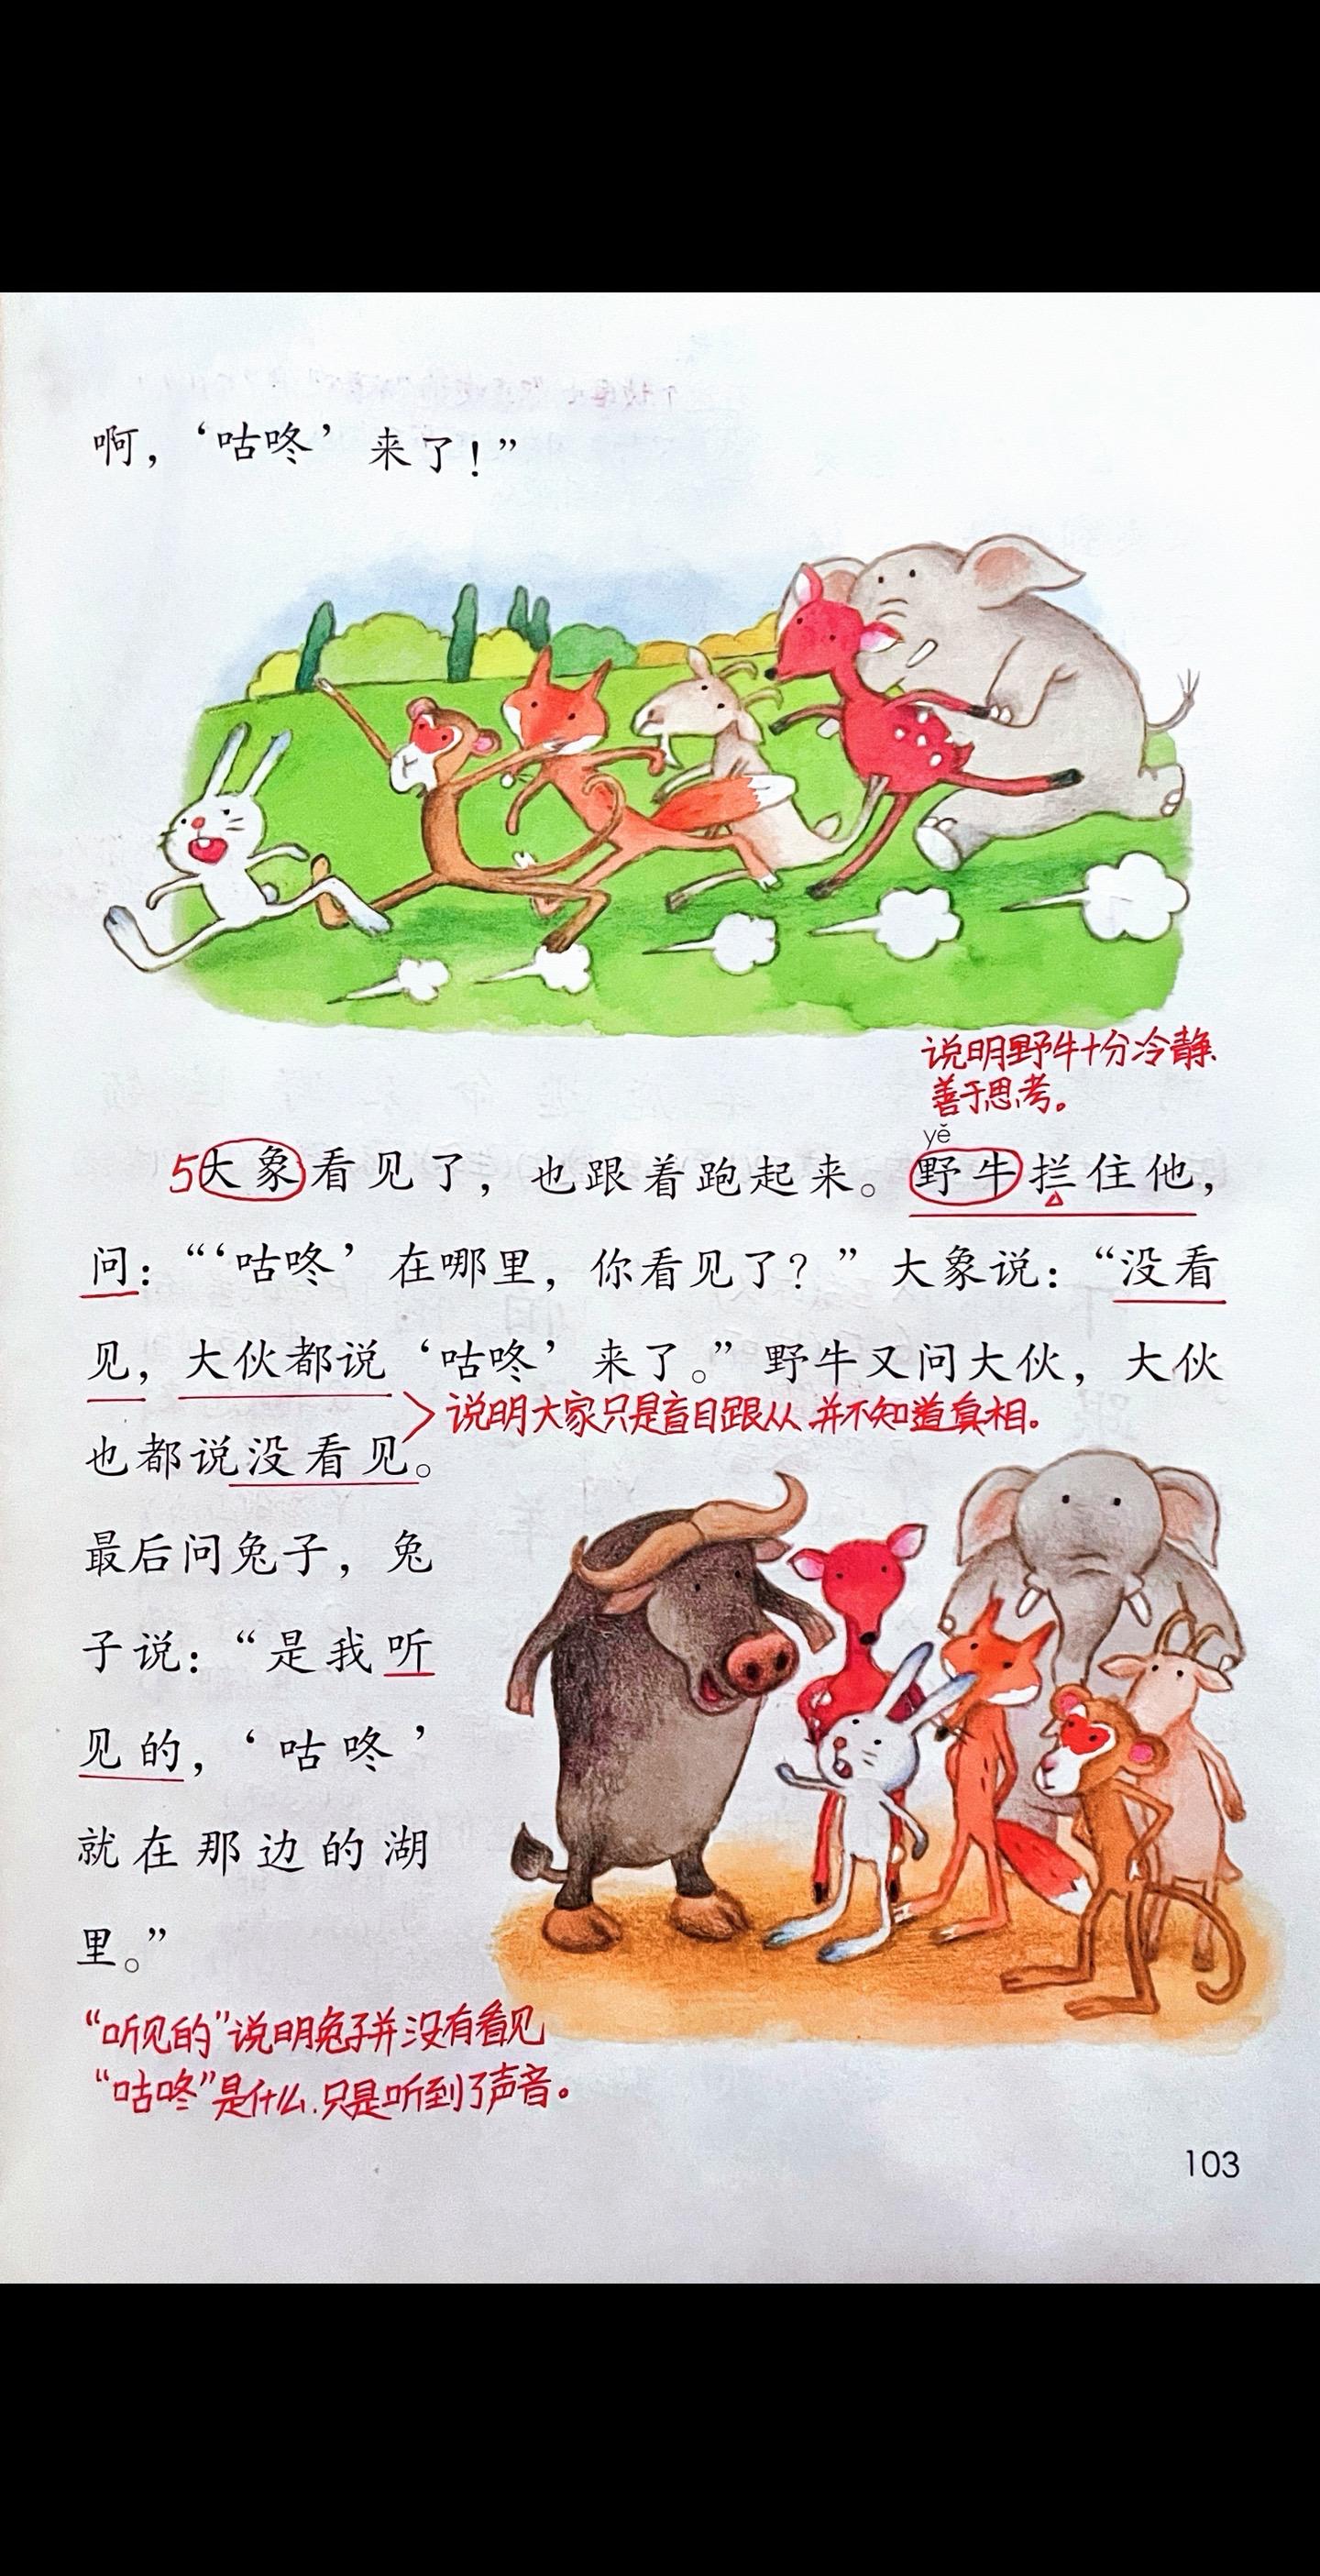 啊，‘咕咚’来了！”
说明野牛十分冷静、
善于思考。
yě
5大象看见了，也跟着跑起来。野牛拦住他，
问：“‘咕咚’在哪里，你看见了？”大象说：“没看
见，大伙都说‘咕咚’来了。”野牛又问大伙，大伙
说明大家只是盲目跟从,并不知道真相。
也都说没看见。
最后问兔子，兔
子说：“是我听
见的，‘咕咚’
就在那边的湖
里。”
“听见的”说明兔子并没有看见
“咕咚”是什么,只是听到了声音。
103